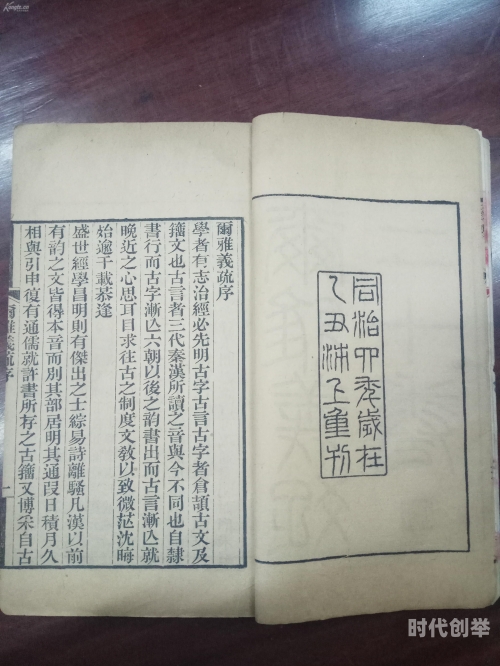 同治四秊歲在
乙丑沛上重刊
爾雅義疏序
學者有志治經必先明古字古言古字者倉頡古文及
籀文也古言者三代秦漢所讀之音與今不同也自隸
書行而古字漸亾六朝以後之韵書出而古言漸亾就
晚近之心思耳目求往古之制度文敎以致微茫沈晦
殆逾千載恭逢
盛世經學昌明則有傑出之士綜易詩離騷凡漢以前
有韵之文皆得本音而別其部居明其通叚日積月久
相與引申復有通儒就許書所存之古籀又博采自古
爾雅義疏序
一
时代创举